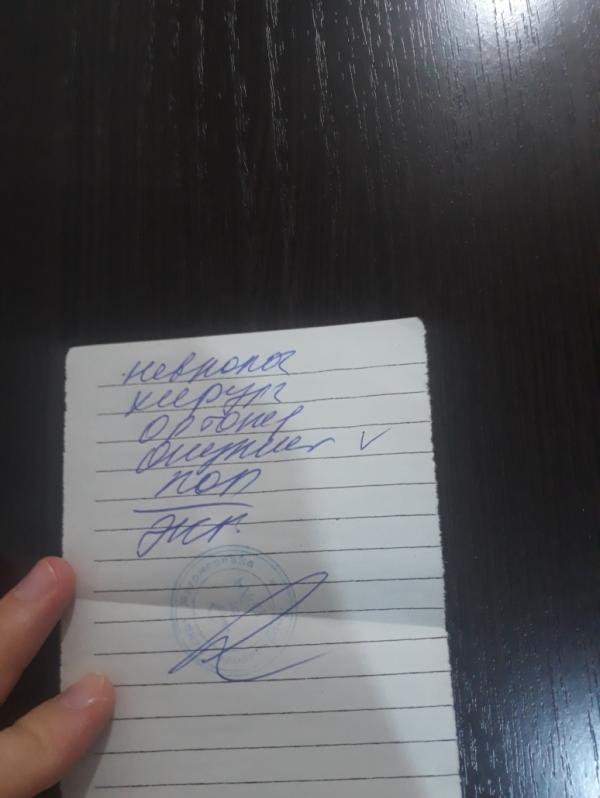 невролог
хирург
ортопед
окулист v
лор
экг.